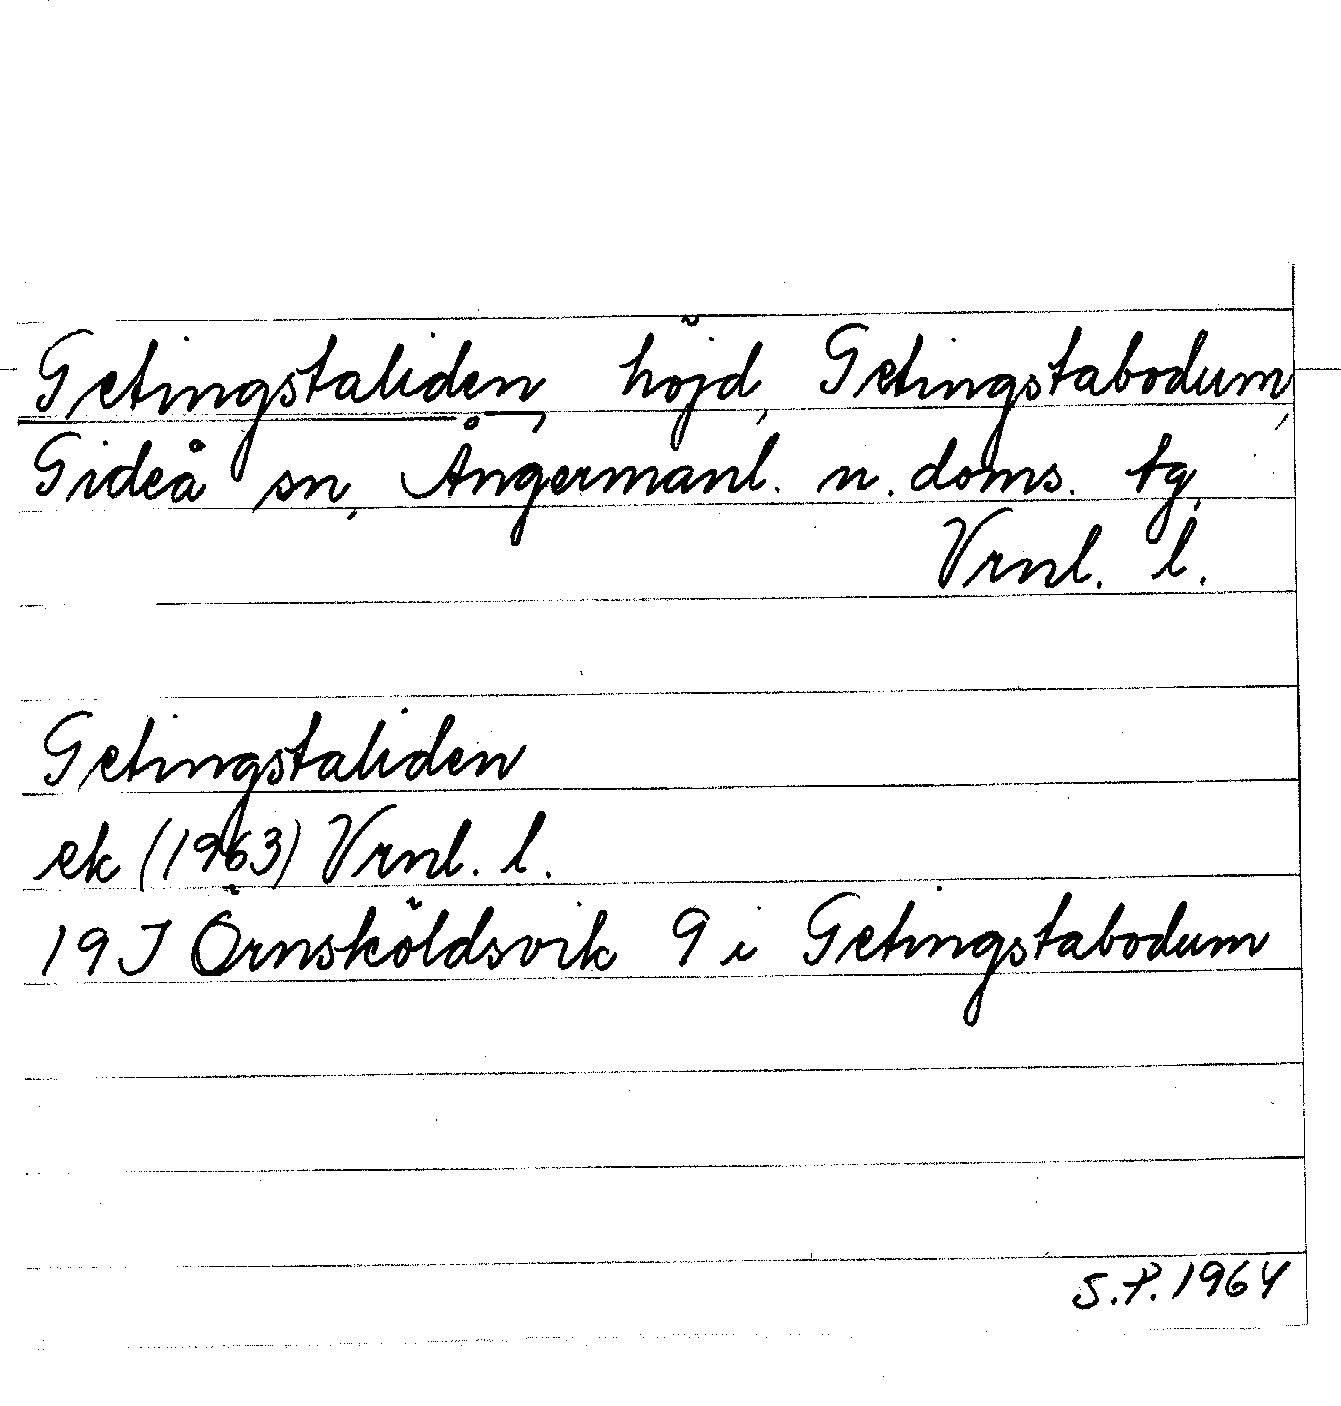 Getingstaliden, höjd, Getingstabodum,
Gideå sn, Ångermanl. n. doms. tg,
Vrnl. l.
Getingstaliden
ek (1963) Vrnl. l.
19J Örnsköldsvik 9 i Getingstabodum
S.P. 1964